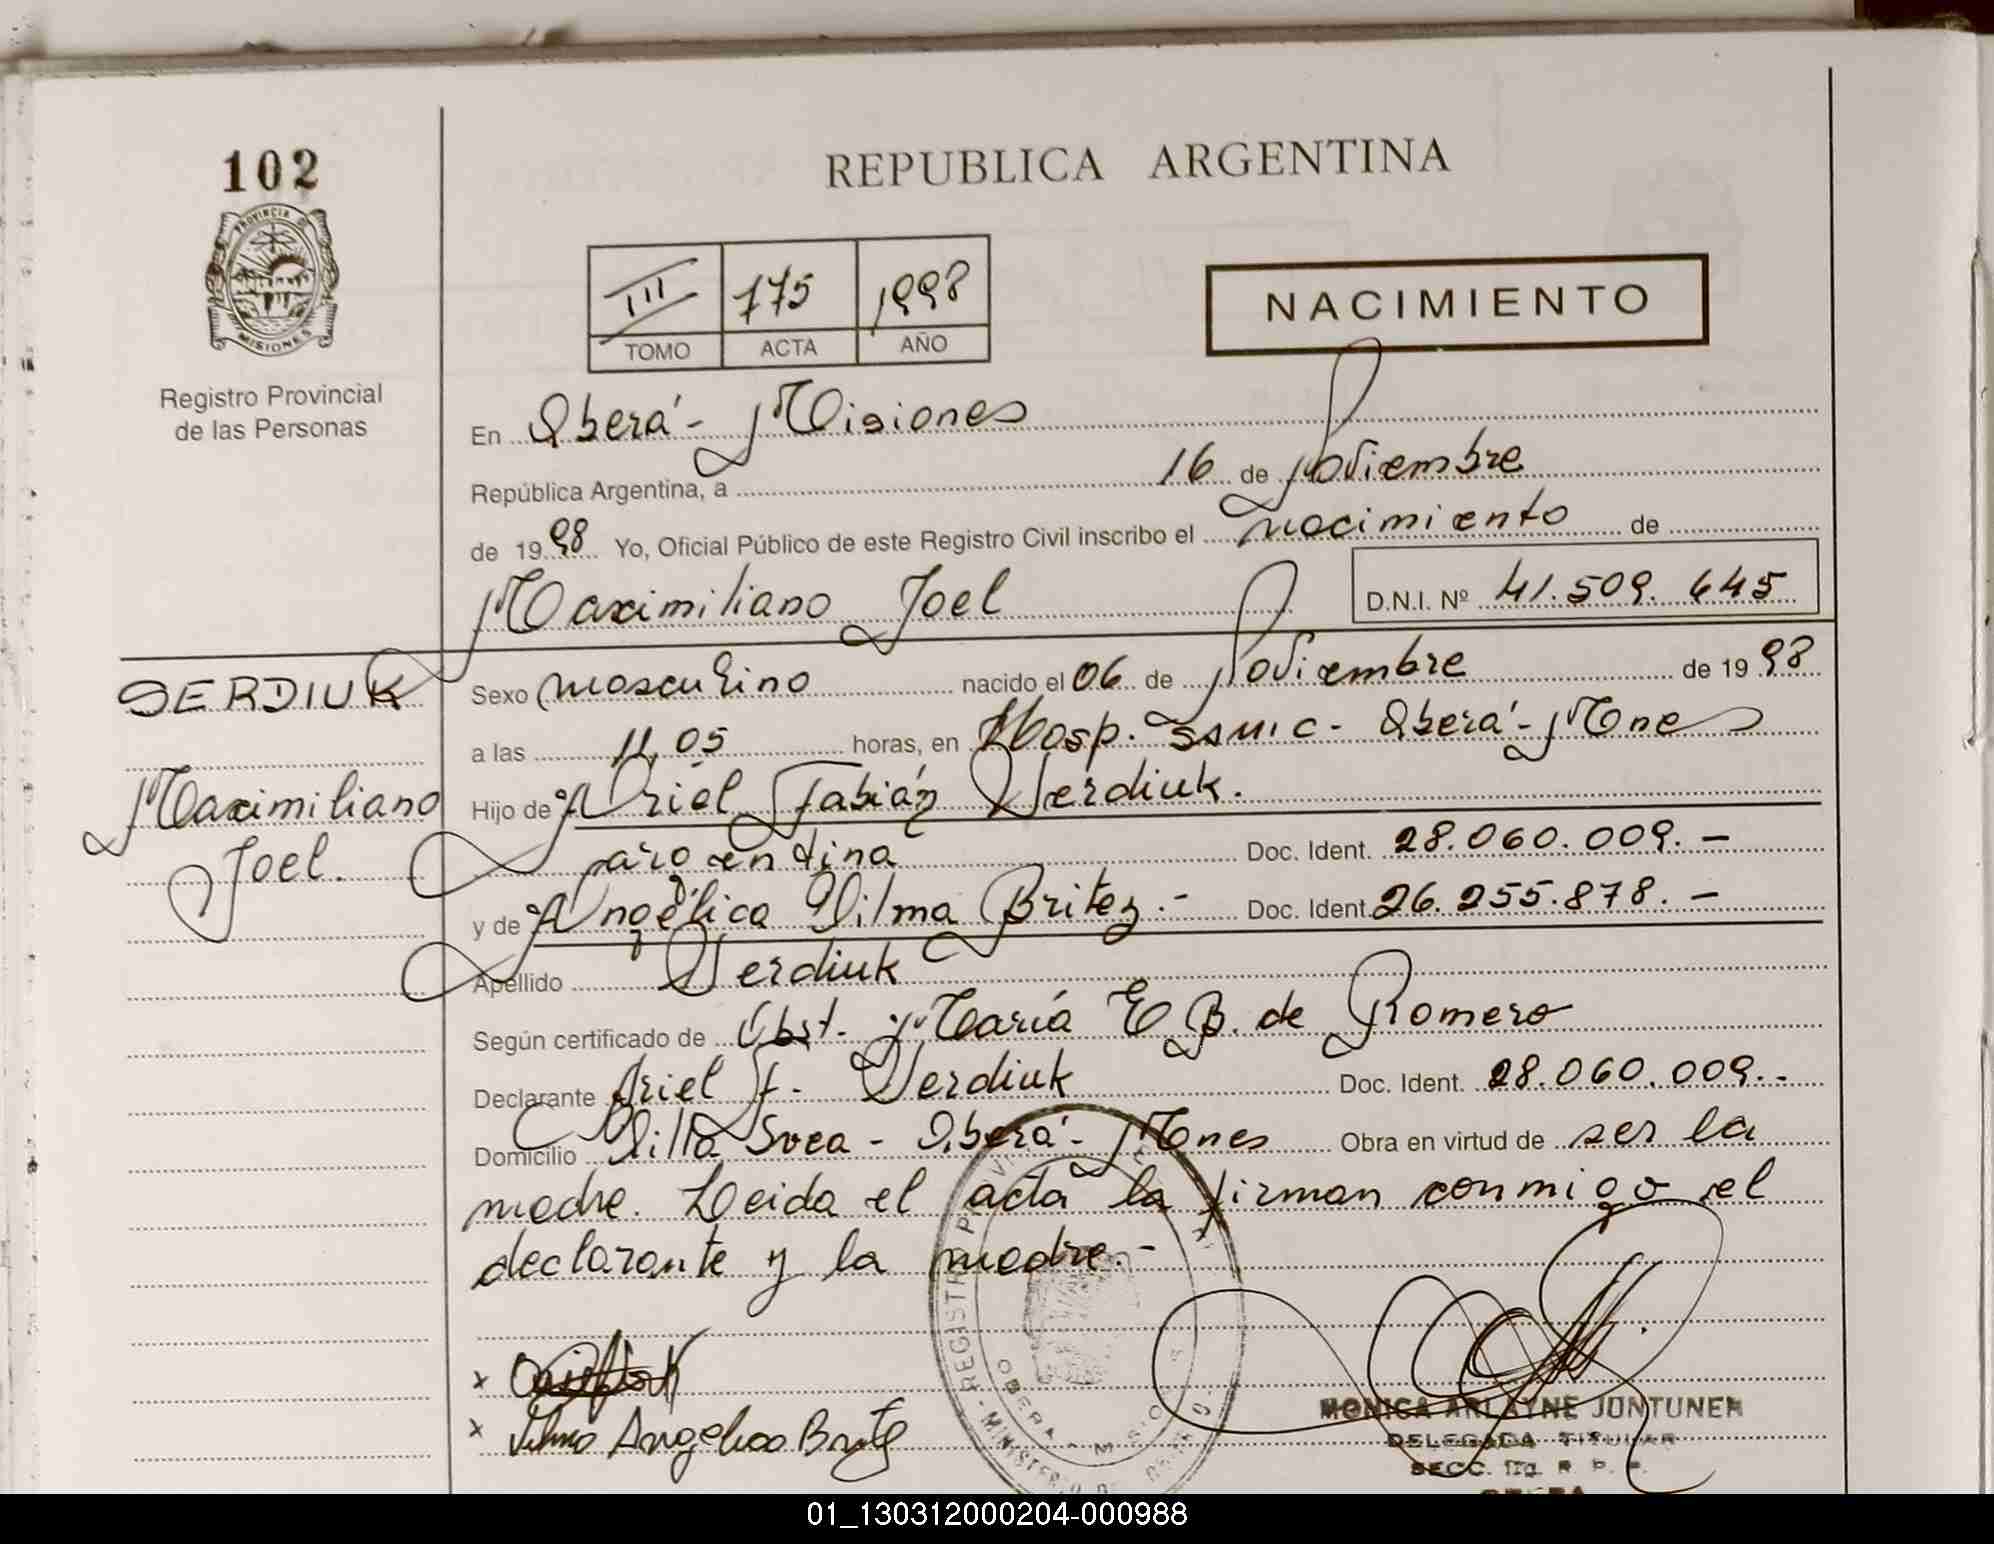 102
PROVINCIA D
MISIONES
Registro Provincial
de las Personas
REPUBLICA ARGENTINA
III 175 1998
TOMO ACTA AÑO
NACIMIENTO
En Oberá - Misiones
República Argentina, a 16 de Noviembre
de 1998 Yo, Oficial Público de este Registro Civil inscribo el nacimiento de
Maximiliano Joel D.N.I. Nº 41.509.645
SERDIUK
Maximiliano
Joel.
Sexo masculino nacido el 06 de Noviembre de 1998
a las 11,05 horas, en Hosp. SAMIC - Oberá - Mnes
Hijo de Ariel Fabián Serdiuk.
argentina Doc. Ident. 28.060.009.-
y de Angélica Vilma Britez.- Doc. Ident. 26.255.878.-
Apellido Serdiuk
Según certificado de Obst. María E B. de Romero
Declarante Ariel F. Serdiuk Doc. Ident. 28.060.009.-
Domicilio Villa Svea - Oberá - Mnes Obra en virtud de ser la
madre. Leida el acta la firman conmigo el
declarante y la madre.-
x
x Vilma Angelica Britez
REGISTR PROVI
MINISTERIO DE
OBERA - MSIO
MONICA ARLAYNE JUNTUNEN
DELEGADA TITULAR
SECC. R. P. P.
01_130312000204-000988